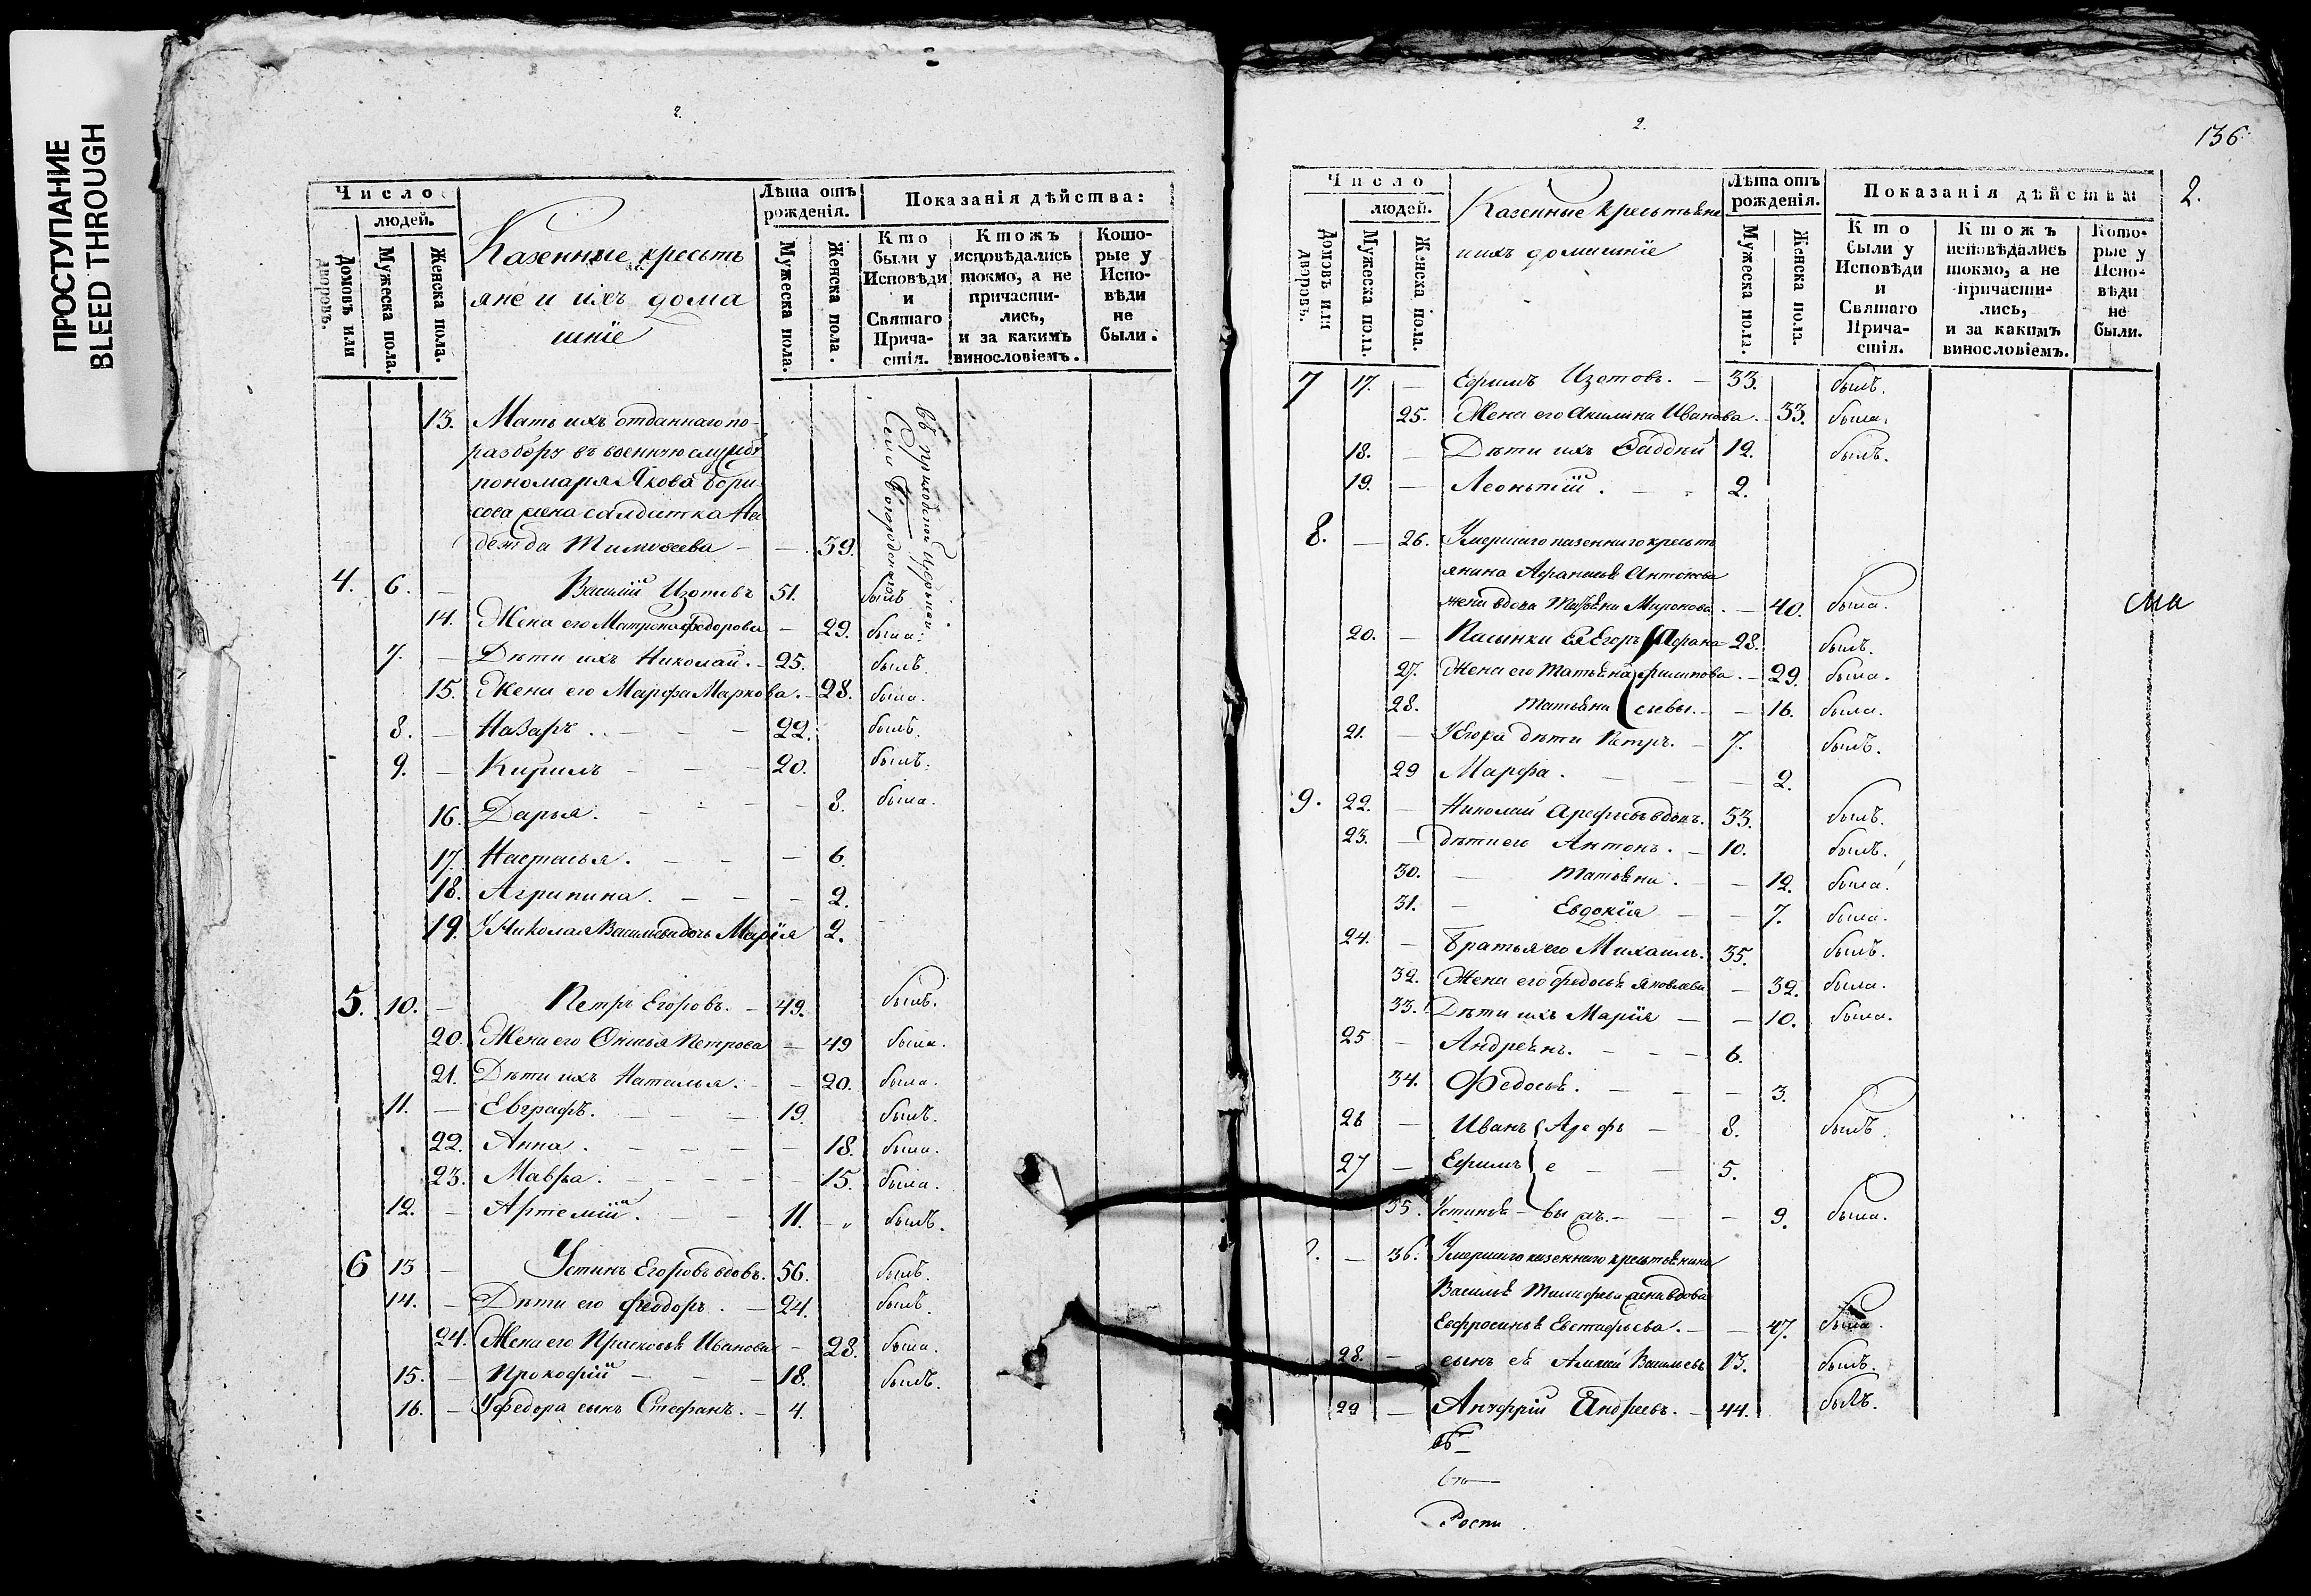 ПРОСТУПАНИЕ
BLEED THROUGH
2.
Число
людей.
Домовъ или дворовъ.
Мужеска пола.
Женска пола.
Казенные кресть
яне и ихъ дома
шнїе
Лѣта отъ рожденія.
Мужеска пола.
Женска пола.
Показанія дѣйства:
Кто были у Исповѣди и Святаго Причастія.
Ктожъ исповѣдались токмо, а не причастились, и за какимъ винословіемъ.
Которые у Исповѣди не были.
13. Мать ихъ отданнаго по
разбору въ военную службу
пономаря Якова Бори
сова жена салдатка На
дежда Тимоѳеева – – 39.
въ приходской Церькви
села Богородскаго
4. 6. – Василїй Изотовъ 51. былъ
14. Жена его Матрона Федорова – 29. была.
7. – Дѣти ихъ Николай. – 25. былъ.
15. Жена его Марфа Маркова. – 28. была.
8. – Назаръ . – – – 22. былъ.
9. – Кирилъ – – – 20. былъ.
16. Дарья. – – – 8. была.
17. Настасья. – – – 6.
18. Агрипина. – – – 2.
19. У Николая Васильева дочь Марїя 2.
5. 10. – Петръ Егоровъ. – 49. былъ.
20. Жена его Ѳнисья Петрова – 49 была.
21. Дѣти ихъ Наталья. – – 20. была.
11. – Евграфъ. – – 19. былъ.
22. Анна. – – – – 18. была.
23. Мавра. – – – – 15. была.
12. – Артемїй. – – 11. – „ былъ.
6 13 – Устинъ Егоровъ вдовъ. 56. былъ.
14. – Дѣти его Феодоръ. – 24. былъ.
24. Жена его Прасковья Иванова – 28. была.
15. – Прокофїй – – – 18. былъ.
16. – У Федора сынъ Стефанъ. – 4.
2.
136.
2.
Число
людей.
Домовъ или дворовъ.
Мужеска пола.
Женска пола.
Казенные крестьяне
и ихъ домашнїе
Лѣта отъ рожденія.
Мужеска пола.
Женска пола.
Показанія дѣйства
Кто были у Исповѣди и Святаго Причастія.
Ктожъ исповѣдались токмо, а не причастились, и за какимъ винословіемъ.
Которые у Исповѣди не были.
7 17. – Ефимъ Изотовъ. – 33. былъ.
25. Жена его Акилина Иванова. – 33. была.
18. – Дѣти ихъ Фаддей 12. былъ.
19. – Леонътїй. – – 2.
8. – 26. Умершаго казеннаго кресть
янина Афанасья Антонова
жена вдова Татьяна Миронова. – 40. была.
20. – Пасынки ея Егоръ Афана 28. былъ.
27. Жена его Татьяна Филипова. – 29. была.
28. Татьяна сьевы. – – 16. была.
21. – У Егора дѣти Петръ. – 7. былъ.
29 Марфа. – – – 2.
9. 22. – Николай Арефьевъ вдовъ. 53. былъ.
23. – дѣти его Антонъ. – 10. былъ.
30. – Татьяна. – – 12. была.
31. – Евдокїя – – 7. была.
24. – Братья его Михаилъ. 35. былъ.
32. Жена его Федосья Яковлева – 32. была.
33. Дѣти ихъ Марїя – – 10. была.
25 – Андреянъ. – – – 6.
34. Федосья. – – – 3.
26 – Иванъ Арефь – 8. былъ.
27 – Ефимъ е – – 5.
35. Устинья – вы хъ. – – – 9. была.
– 36. Умершаго казеннаго крестьянина
Василья Тимофеева жена вдова
Евфросинья Евстафьева. – – 47. была.
28. – сынъ ея Алексей Васильевъ 13. былъ.
29 – Ануфрїй Андреевъ. – 44. былъ.
Роспи